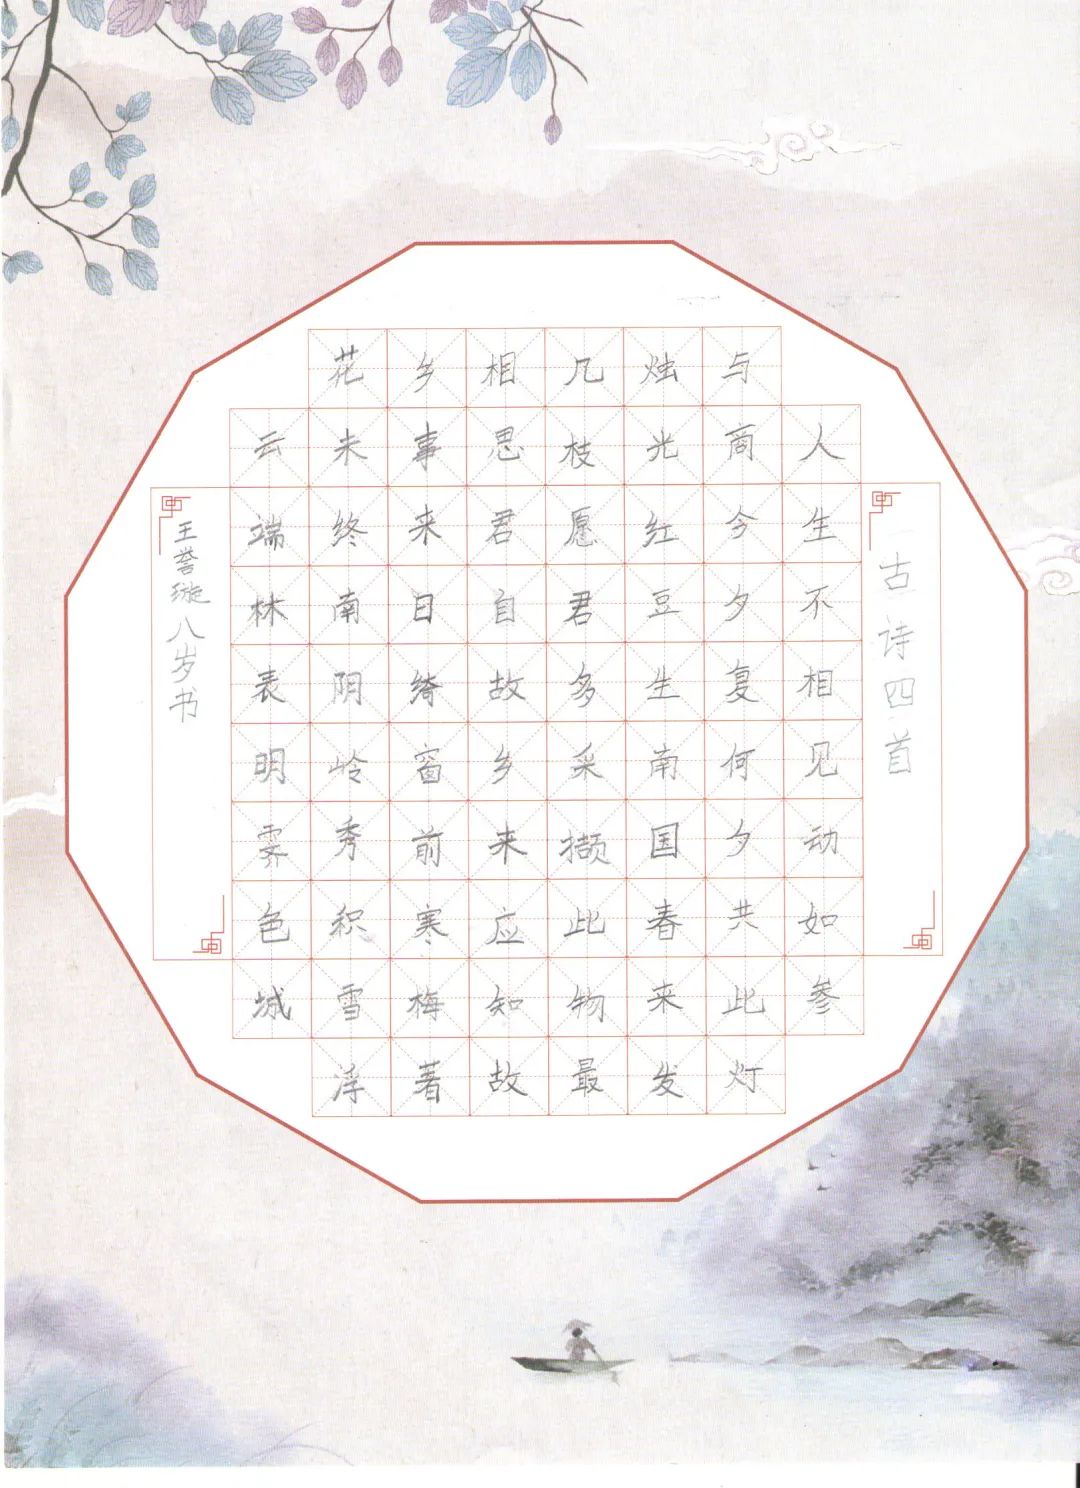 古诗四首
人生不相见动如参
与商今夕复何夕共此灯
烛光红豆生南国春来发
几枝愿君多采撷此物最
相思君自故乡来应知故
乡事来日绮窗前寒梅着
花未终南阴岭秀积雪浮
云端林表明霁色城
王誉璇八岁书